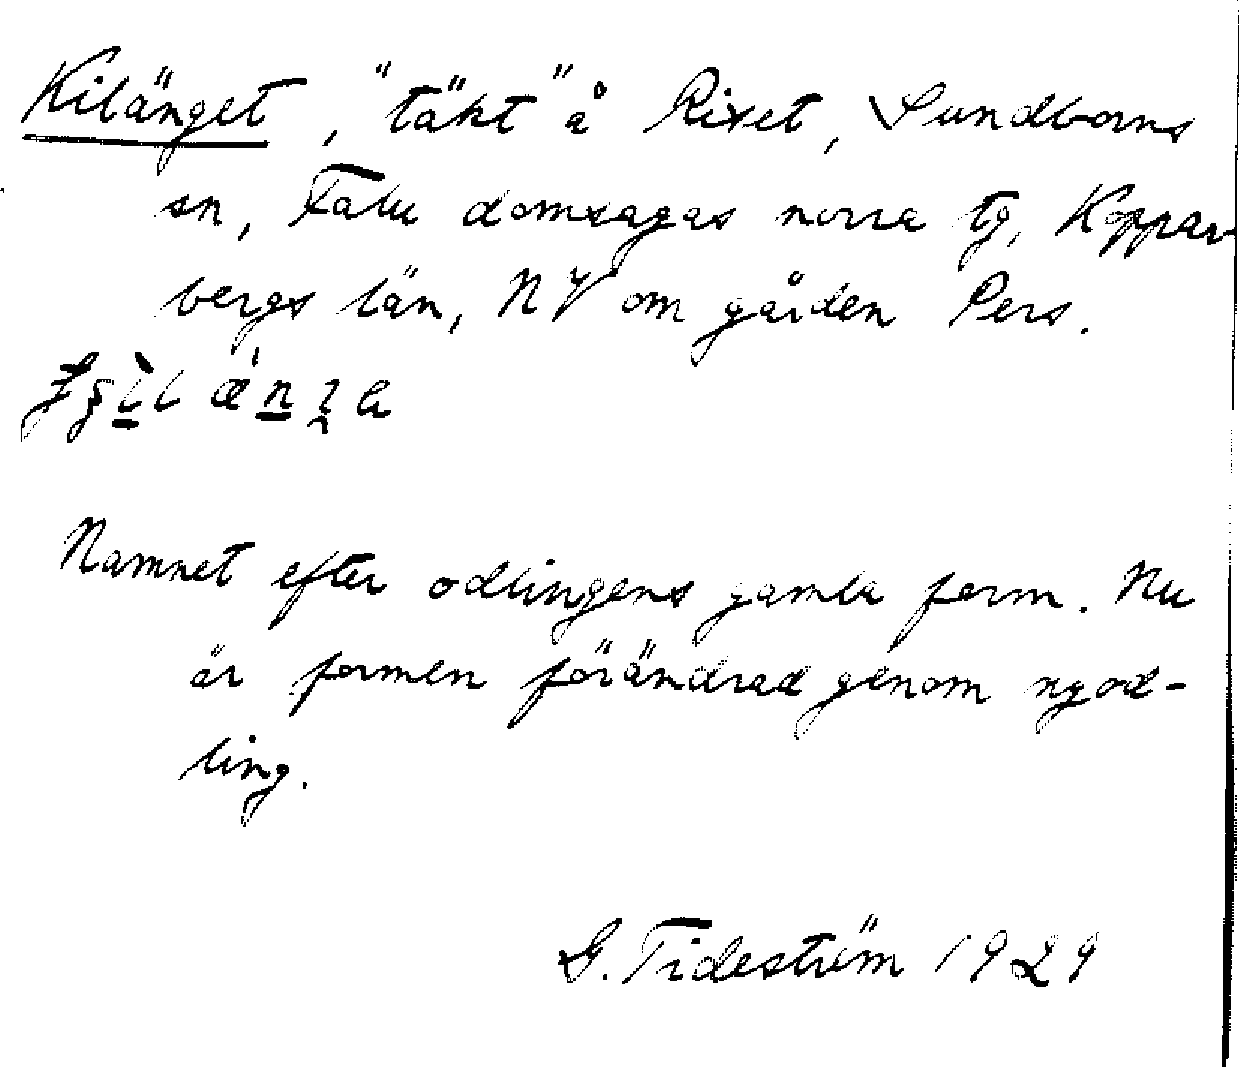 Kilänget, "täkt" å Rixet, Sundborns
sn, Falu domsagas norra tg, Koppar
bergs län, NV om gården Pers.
Namnet efter odlingens gamla form. Nu
är formen förändrad genom nyod-
ling.
G. Tideström 1929